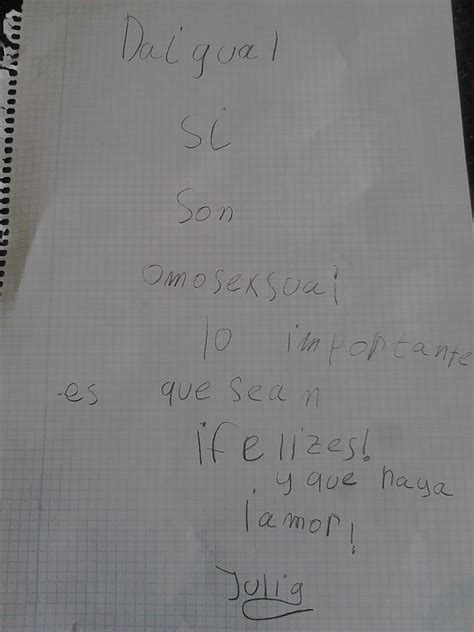 Daigual
si
son
omosexsual
lo importante
-es que sean
¡felizes!
y que haya
¡amor!
Julia